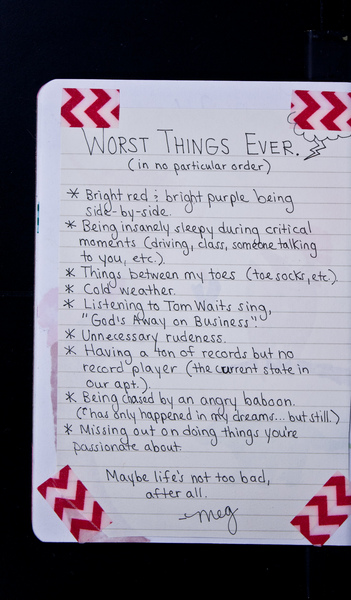 WORST THINGS EVER.
(in no particular order)
* Bright red & bright purple being
side-by-side.
* Being insanely sleepy during critical
moments (driving, class, someone talking
to you, etc.).
* Things between my toes (toe socks, etc.)
* Cold weather.
* Listening to Tom Waits sing,
"God's Away on Business".
* Unnecessary rudeness.
* Having a ton of records but no
record player (the current state in
our apt.).
* Being chased by an angry baboon.
(* has only happened in my dreams... but still.)
* Missing out on doing things you're
passionate about.
Maybe life's not too bad,
after all.
-meg